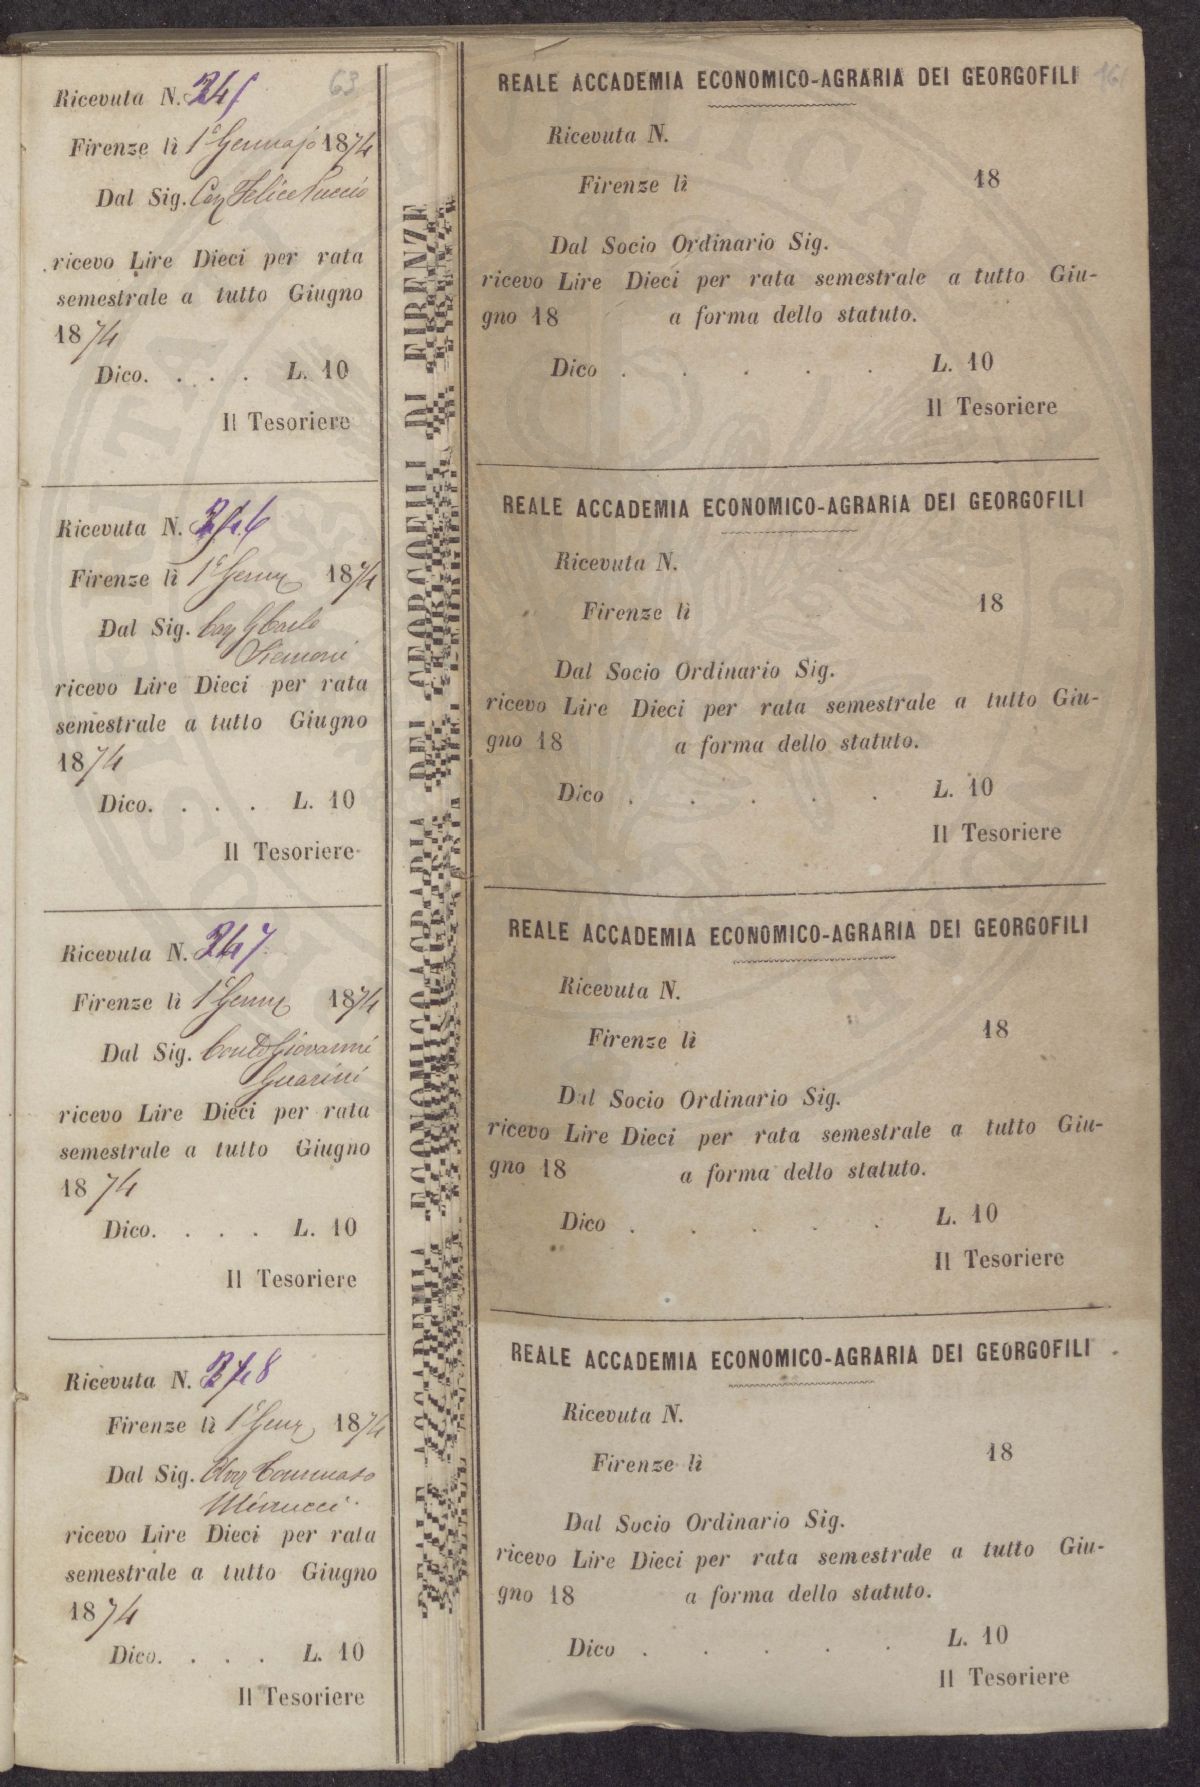 63
Ricevuta N. 345
Firenze lì 1° Gennajo 1874
Dal Sig. Cav Felice Puccio
ricevo Lire Dieci per rata
semestrale a tutto Giugno
1874
Dico. . . . L. 10
Il Tesoriere
Ricevuta N. 346
Firenze lì 1° Genn 1874
Dal Sig. Cav Carlo
Siemoni
ricevo Lire Dieci per rata
semestrale a tutto Giugno
1874
Dico. . . . L. 10
Il Tesoriere
Ricevuta N. 347
Firenze lì 1° Genn 1874
Dal Sig. Conte Giovanni
Guarini
ricevo Lire Dieci per rata
semestrale a tutto Giugno
1874
Dico. . . . L. 10
Il Tesoriere
Ricevuta N. 348
Firenze lì 1° Genn 1874
Dal Sig. Avv Tommaso
Minucci
ricevo Lire Dieci per rata
semestrale a tutto Giugno
1874
Dico. . . . L. 10
Il Tesoriere
REALE ACCADEMIA ECONOMICO-AGRARIA DEI GEORGOFILI DI FIRENZE
REALE ACCADEMIA ECONOMICO-AGRARIA DEI GEORGOFILI
Ricevuta N.
Firenze lì 18
Dal Socio Ordinario Sig.
ricevo Lire Dieci per rata semestrale a tutto Giu-
gno 18 a forma dello statuto.
Dico . . . . . L. 10
Il Tesoriere
REALE ACCADEMIA ECONOMICO-AGRARIA DEI GEORGOFILI
Ricevuta N.
Firenze lì 18
Dal Socio Ordinario Sig.
ricevo Lire Dieci per rata semestrale a tutto Giu-
gno 18 a forma dello statuto.
Dico . . . . . L. 10
Il Tesoriere
REALE ACCADEMIA ECONOMICO-AGRARIA DEI GEORGOFILI
Ricevuta N.
Firenze lì 18
Dal Socio Ordinario Sig.
ricevo Lire Dieci per rata semestrale a tutto Giu-
gno 18 a forma dello statuto.
Dico . . . . . L. 10
Il Tesoriere
REALE ACCADEMIA ECONOMICO-AGRARIA DEI GEORGOFILI
Ricevuta N.
Firenze lì 18
Dal Socio Ordinario Sig.
ricevo Lire Dieci per rata semestrale a tutto Giu-
gno 18 a forma dello statuto.
Dico . . . . . L. 10
Il Tesoriere